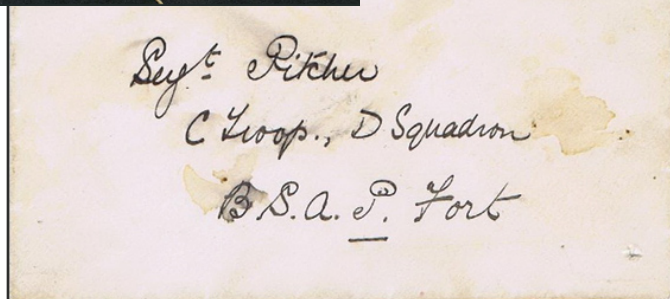 Sergt Pitcher
C Troop., D Squadron
B.S.A.P. Fort